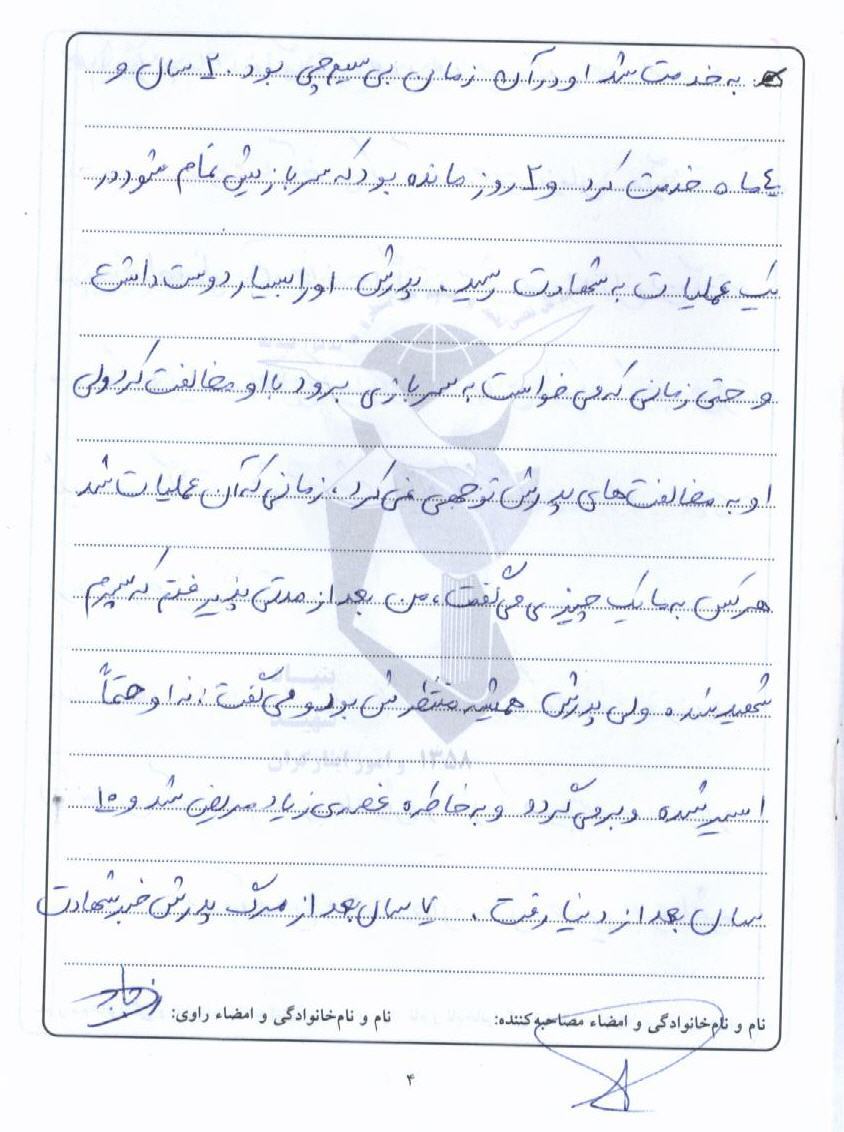 به خدمت شد او در آن زمان بی سیم چی بود. ۲ سال و
۴ ماه خدمت کرد و ۲ روز مانده بود که سربازیش تمام شود در
یک عملیات به شهادت رسید. پدرش او را بسیار دوست داشت
و حتی زمانی که می خواست به سربازی برود با او مخالفت کرد ولی
او به مخالفت های پدرش توجهی نمی کرد، زمانی که آن عملیات شد
هر کس به ما یک چیزی می گفت، من بعد از مدتی پذیرفتم که پسرم
شهید شده ولی پدرش همیشه منتظرش بود و می گفت: نه او حتماً
اسیر شده و برمی گردد و به خاطره غصه ی زیاد مریض شد و ۱۰
سال بعد از دنیا رفت. ۷ سال بعد از مرگ پدرش خبر شهادت
بنیاد شهید و امور ایثارگران
۱۳۵۸
نام و نام‌خانوادگی و امضاء مصاحبه‌کننده:
نام و نام‌خانوادگی و امضاء راوی:
۴